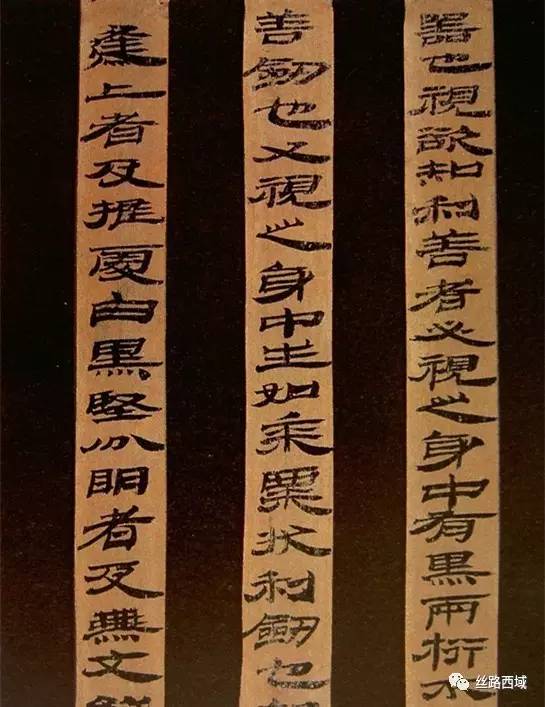 器也視欲知利善者必視之身中有黑兩桁不
善劒也又視之身中生如黍粟狀利劒也
逢上者及推處白黑堅分明者及無文
丝路西域